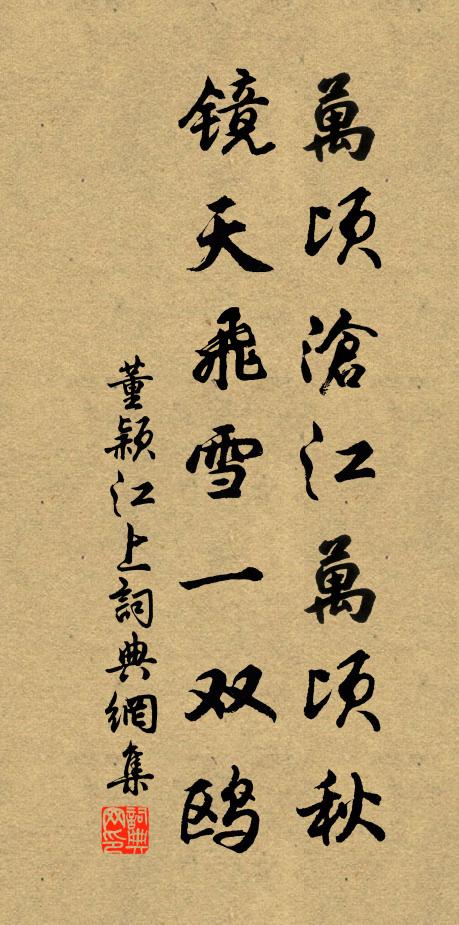 萬頃滄江萬頃秋
镜天飛雪一双鸥
董颖江上詞典網集
詞典网印